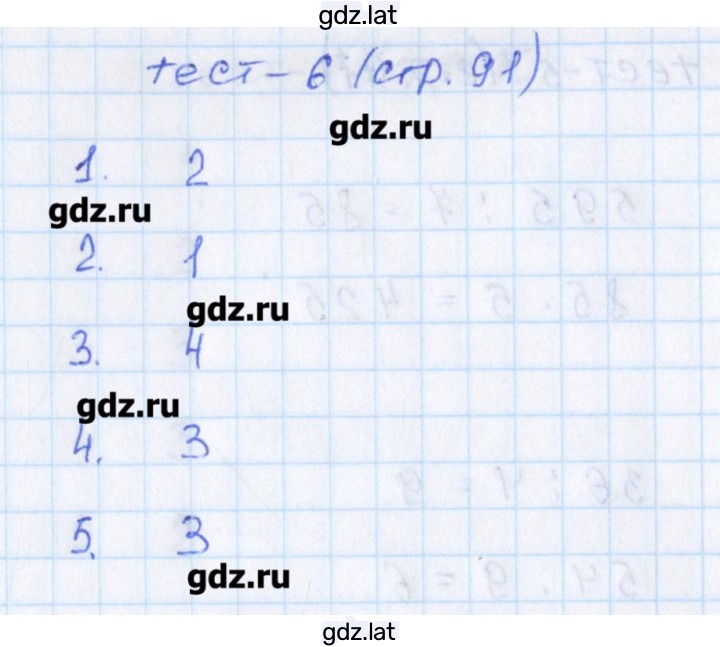 gdz.lat
тест-6 (стр. 91)
gdz.ru
1. 2
gdz.ru
2. 1
gdz.ru
3. 4
gdz.ru
4. 3
5. 3
gdz.ru
gdz.lat